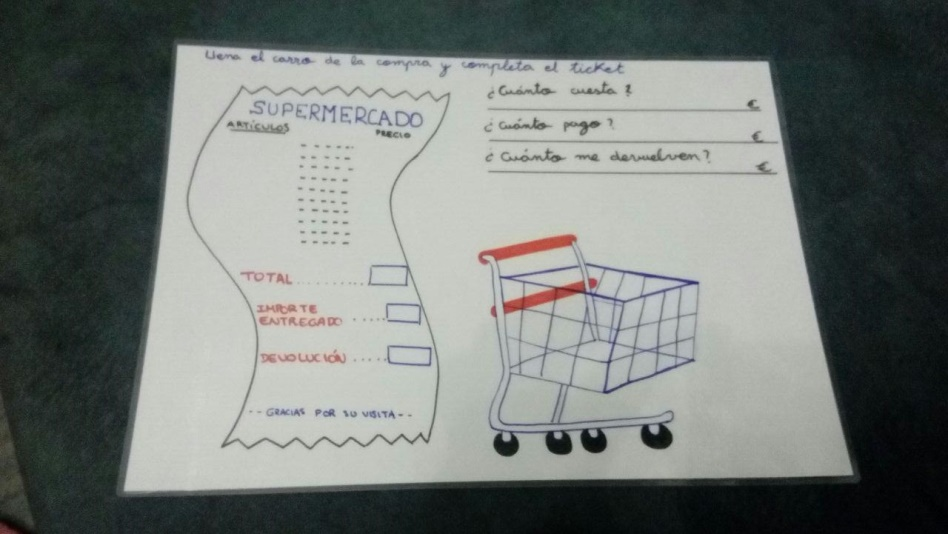 Llena el carro de la compra y completa el ticket
SUPERMERCADO
ARTÍCULOS PRECIO
TOTAL ..........
IMPORTE
ENTREGADO .....
DEVOLUCIÓN .....
-- GRACIAS POR SU VISITA --
¿Cuánto cuesta?
€
¿Cuánto pago?
€
¿Cuánto me devuelven?
€